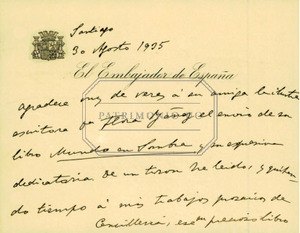 Santiago
30 Agosto 1935
El Embajador de España
agradece muy de veras á su amiga la ilustre
escritora Flora Yáñez el envío de su
PATRIMONIO
libro Mundo en Sombra y su expresiva
dedicatoria. De un tiron he leido, y quitan-
do tiempo á mis trabajos prosaicos de
Cancillería, ese precioso libro